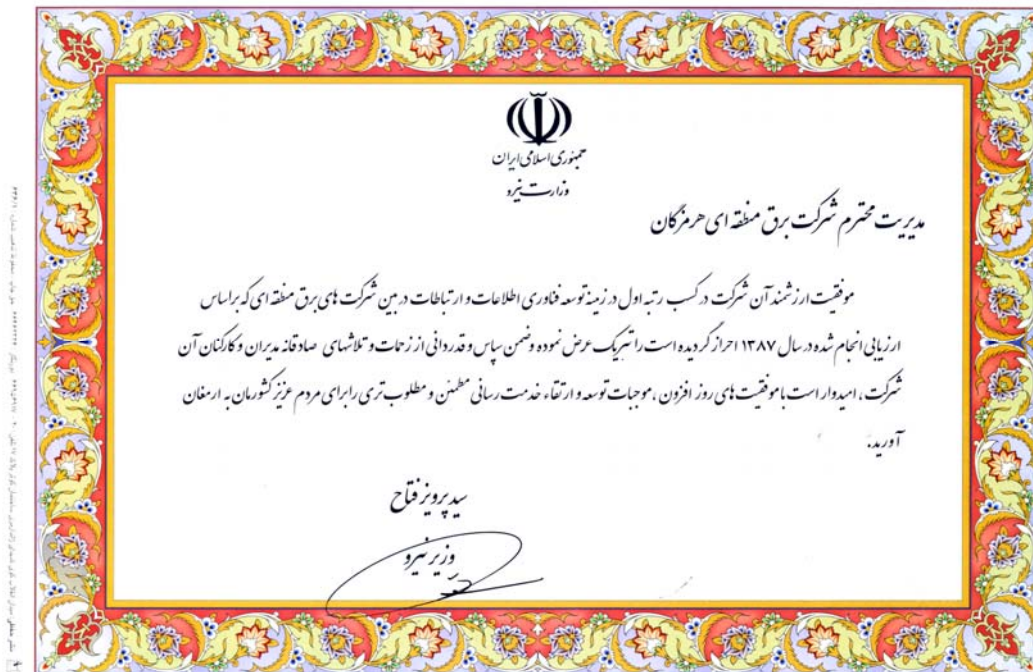 جمهوری اسلامی ایران
وزارت نیرو
مدیریت محترم شرکت برق منطقه ای هرمزگان
موفقیت ارزشمند آن شرکت در کسب رتبه اول در زمینه توسعه فناوری اطلاعات و ارتباطات در بین شرکت های برق منطقه ای که براساس
ارزیابی انجام شده در سال ۱۳۸۷ احراز گردیده است را تبریک عرض نموده وضمن سپاس و قدردانی از زحمات و تلاشهای صادقانه مدیران و کارکنان آن
شرکت ، امیدوار است با موفقیت های روز افزون ، موجبات توسعه و ارتقاء خدمت رسانی مطمئن و مطلوب تری را برای مردم عزیز کشورمان به ارمغان
آورید.
سید پرویز فتاح
وزیر نیرو